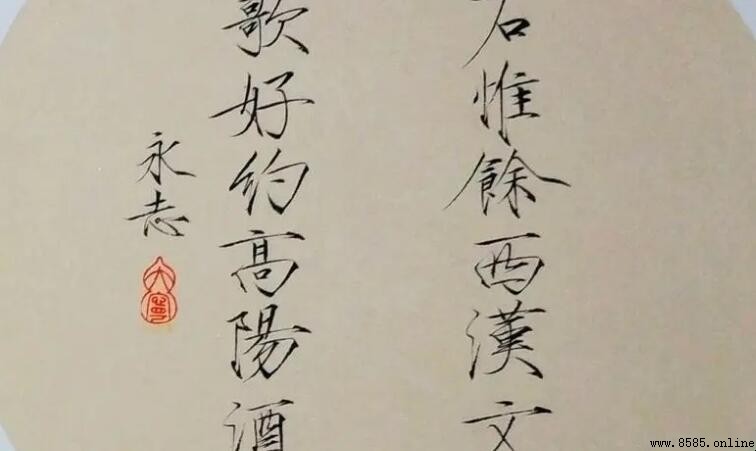 石惟餘西漢文
歌好約高陽酒
永志
大寧
www.8585.online